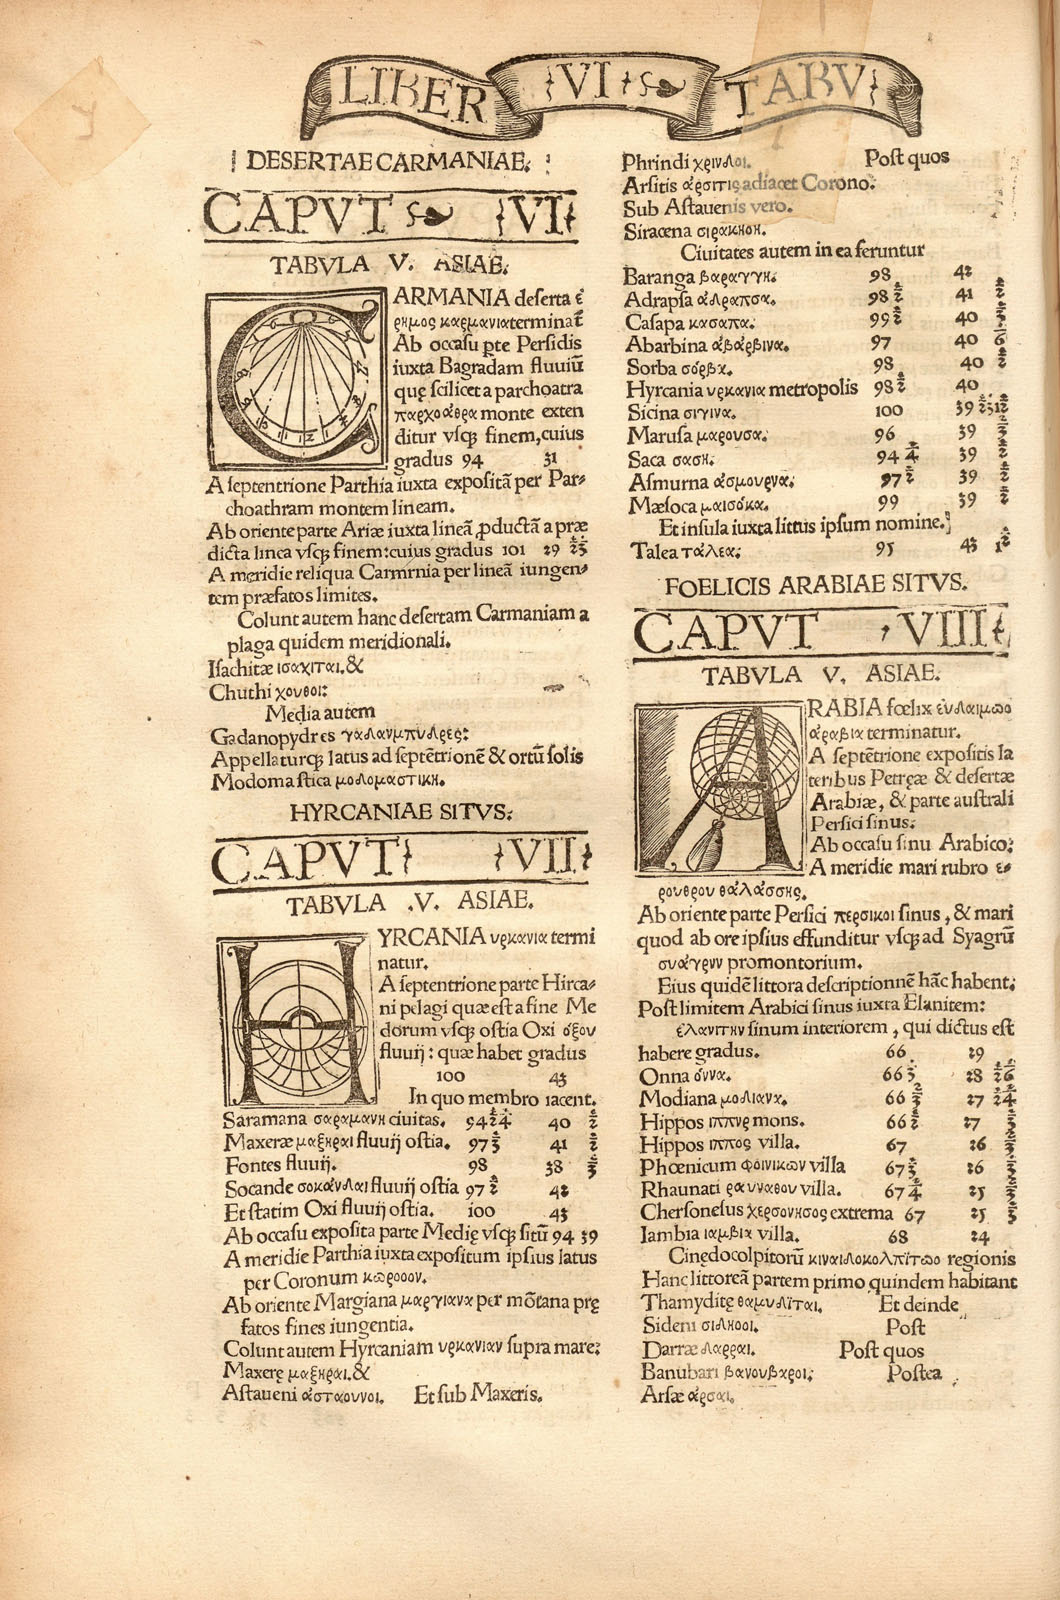 LIBER VI TABV
DESERTAE CARMANIAE.
CAPVT VI
TABVLA V. ASIAE.
CARMANIA deserta ἐ
ρημος καρμανια terminat̃
Ab occasu ꝑte Persidis
iuxta Bagradam fluuiũ
quę scilicet a parchoatra
παρχοάθρα monte exten
ditur vsq; finem, cuius
gradus 94 31
A septentrione Parthia iuxta expositã per Par-
choathram montem lineam.
Ab oriente parte Ariæ iuxta lineã ꝓductã a præ
dicta linea vsq; finem: cuius gradus 101 29
A meridie reliqua Carmrnia per lineã iungen-
tem præfatos limites.
Colunt autem hanc desertam Carmaniam a
plaga quidem meridionali.
Isachitæ ισαχιται. &
Chuthi χουθοι:
Media autem
Gadanopydres γαδανμπυδρες:
Appellaturq; latus ad septẽtrionẽ & ortũ solis
Modomastica μοδομαστικη.
HYRCANIAE SITVS:
CAPVT VII
TABVLA .V. ASIAE.
HYRCANIA υρκανια termi
natur.
A septentrione parte Hirca-
ni pelagi quæ est a fine Me
dorum vsq; ostia Oxi όξου
fluuij: quæ habet gradus
100 43
In quo membro iacent.
Saramana σαραμανη ciuitas. 94 ½ ¼ 40 ½
Maxeræ μαξηραι fluuij ostia. 97 ⅓ 41 ½
Fontes fluuij. 98 38 ⅔
Socande σοκάνδαι fluuij ostia 97 ½ 42
Et statim Oxi fluuij ostia. 100 43
Ab occasu exposita parte Medię vsq; sitũ 94 39
A meridie Parthia iuxta expositum ipsius latus
per Coronum κωροον.
Ab oriente Margiana μαργιανα per mõtana prę
fatos fines iungentia.
Colunt autem Hyrcaniam υρκανιαν supra mare:
Maxerę μαξηραι. &
Astaueni ἀσταουνοι. Et sub Maxeris.
Phrindi χρινδοι. Post quos
Arsitis ἀρσιτις adiacet Corono:
Sub Astauenis vero.
Siracena σιρακηοη.
Ciuitates autem in ea feruntur
Baranga βαραγγη. 98 42
Adrapsa ἀδραπσα. 98 ½ 41 ½
Casapa κασαπα. 99 ½ 40
Abarbina ἀβάρβινα. 97 40
Sorba σόρβα. 98 40 ½
Hyrcania υρκανια metropolis 98 ½ 40
Sicina σιγινα. 100 39
Marusa μαρουσα. 96 39
Saca σαση. 94 ¼ 39 ½
Asmurna ἀσμουρνα. 97 ½ 39 ½
Mæsoca μαισόκα. 99 39 ½
Et insula iuxta littus ipsum nomine.
Talea τάλεα: 95 43
FOELICIS ARABIAE SITVS.
CAPVT VIII
TABVLA V. ASIAE.
ARABIA fœlix ἐυδαιμωο
ἀραβια terminatur.
A septẽtrione expositis la
teribus Petręæ & desertæ
Arabiæ, & parte australi
Persici sinus:
Ab occasu sinu Arabico:
A meridie mari rubro ε-
ρουθρου θαλάσσης.
Ab oriente parte Persici περσικοι sinus, & mari
quod ab ore ipsius effunditur vsq; ad Syagrũ
συάγρυν promontorium.
Eius quidẽ littora descriptionnẽ hãc habent:
Post limitem Arabici sinus iuxta Elanitem:
ελανιτην sinum interiorem, qui dictus est
habere gradus. 66 29
Onna όννα. 66 28
Modiana μοδιανα. 66 27
Hippos ιππυς mons. 66 ½ 27
Hippos ιππος villa. 67 26
Phœnicum φοινικων villa 67 26
Rhaunati ραυναθου villa. 67 ¼ 25
Chersonesus χερσονησος extrema 67 25
Iambia ιαμβια villa. 68 24
Cinędocolpitorũ κιναιδοκολπῖτωο regionis
Hanc littoreã partem primo quindem habitant
Thamyditę θαμυδῖται. Et deinde
Sideni σιδηοοι. Post
Darræ δαρραι. Post quos
Banubari βανουβαροι: Postea
Arsæ ἀρσαι.